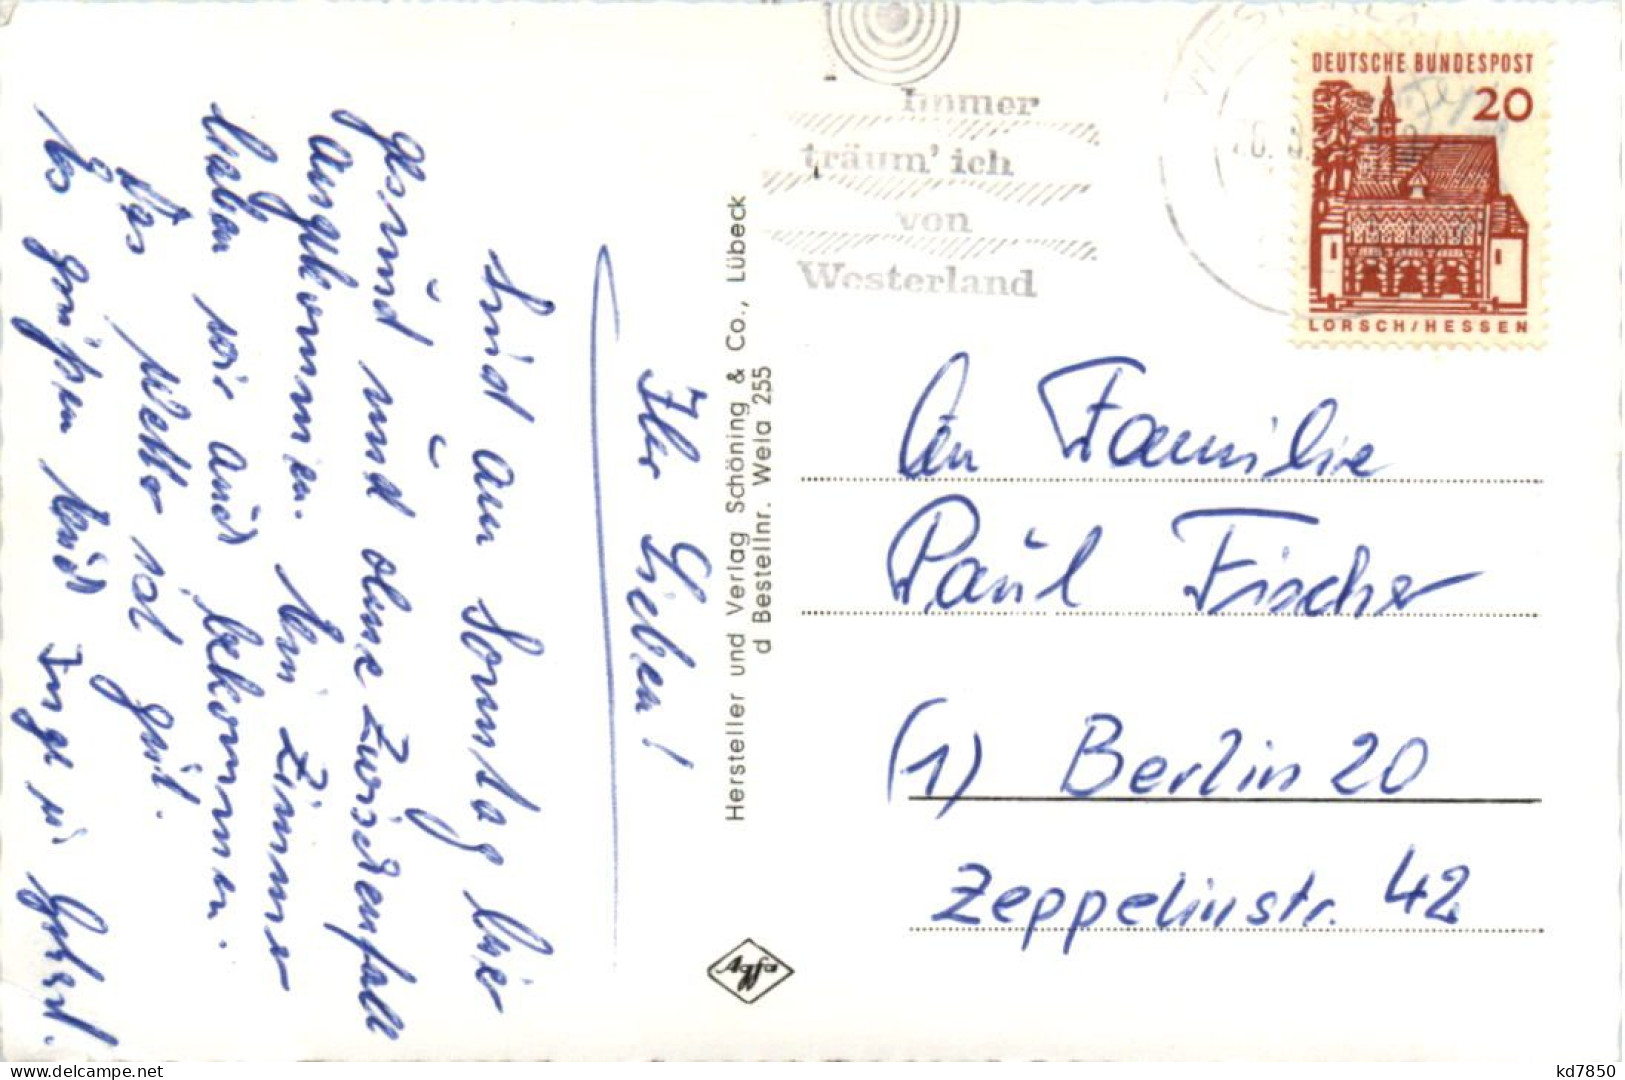 Ihr Lieben!
Sind am Sonntag hier
gesund und ohne Zwischenfall
angekommen. Ein Zimmer
haben wir auch bekommen.
Das Wetter ist gut.
Es grüßen Euch Inge u. Horst.
Hersteller und Verlag Schöning & Co., Lübeck
d Bestellnr. Wela 255
Immer
träum' ich
von
Westerland
DEUTSCHE BUNDESPOST
20
LORSCH/HESSEN
An Familie
Paul Fischer
(1) Berlin 20
Zeppelinstr. 42
kd7850